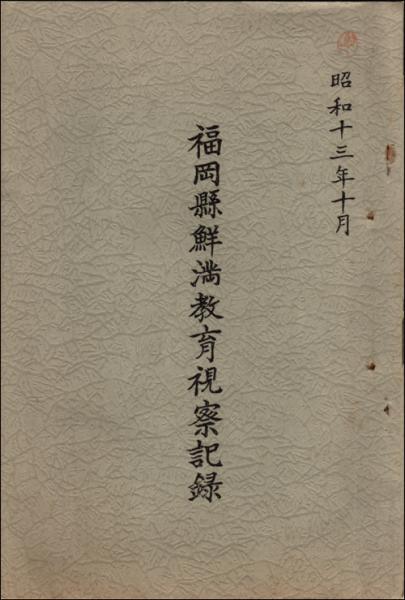 昭和十三年十月
福岡縣鮮満教育視察記録